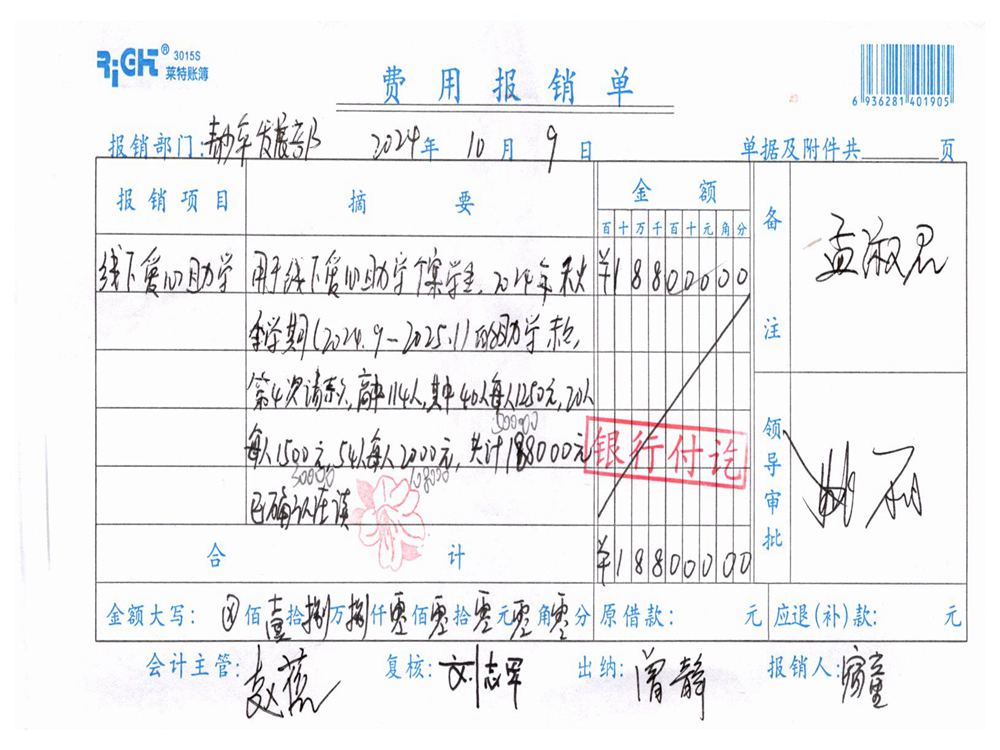 RiGHT® 3015S
莱特账簿
费用报销单
6 936281 401905
报销部门: 青少年发展部 2024年 10月 9日 单据及附件共 页
报销项目 摘要 金额 备注
百十万千百十元角分
线下爱心助学 用于线下爱心助学个案学生,2024年秋 ¥18800000 孟淑君
季学期(2024.9-2025.1)的助学款,
第4次请款,高中114人,其中40人每人1250元,20人
50000
每人1500元,54人每人2000元,共计188000元
30000 108000
已确认在读
银行付讫
领导审批
合计 ¥18800000
金额大写: ⊗佰壹拾捌万捌仟零佰零拾零元零角零分 原借款: 元 应退(补)款: 元
会计主管: 赵蕊 复核: 刘志军 出纳: 曾静 报销人: